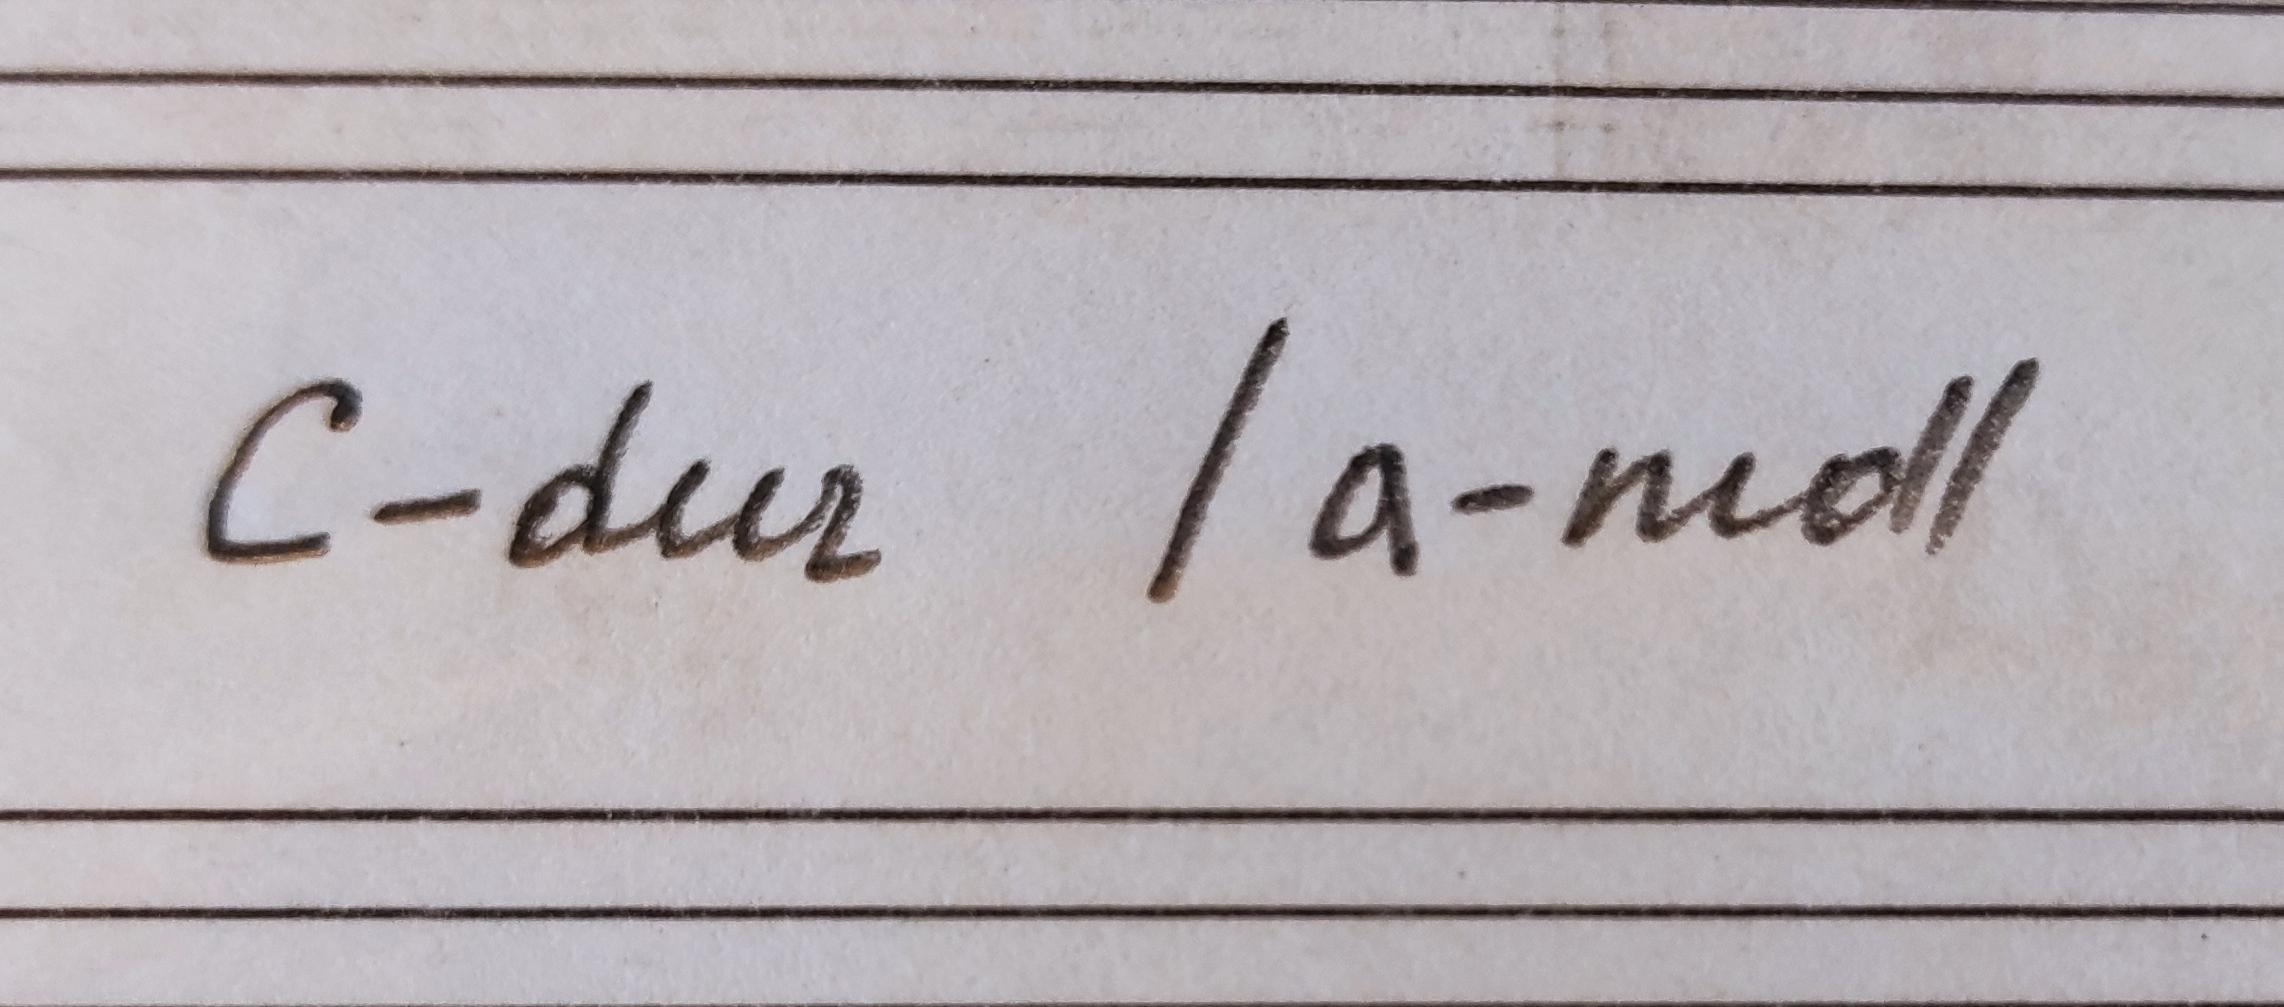 C-dur / a-moll